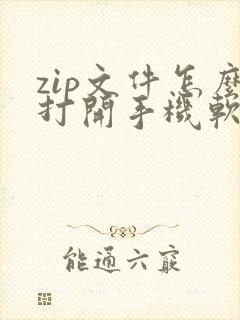 zip文件怎麼
打開手機軟
能通六竅